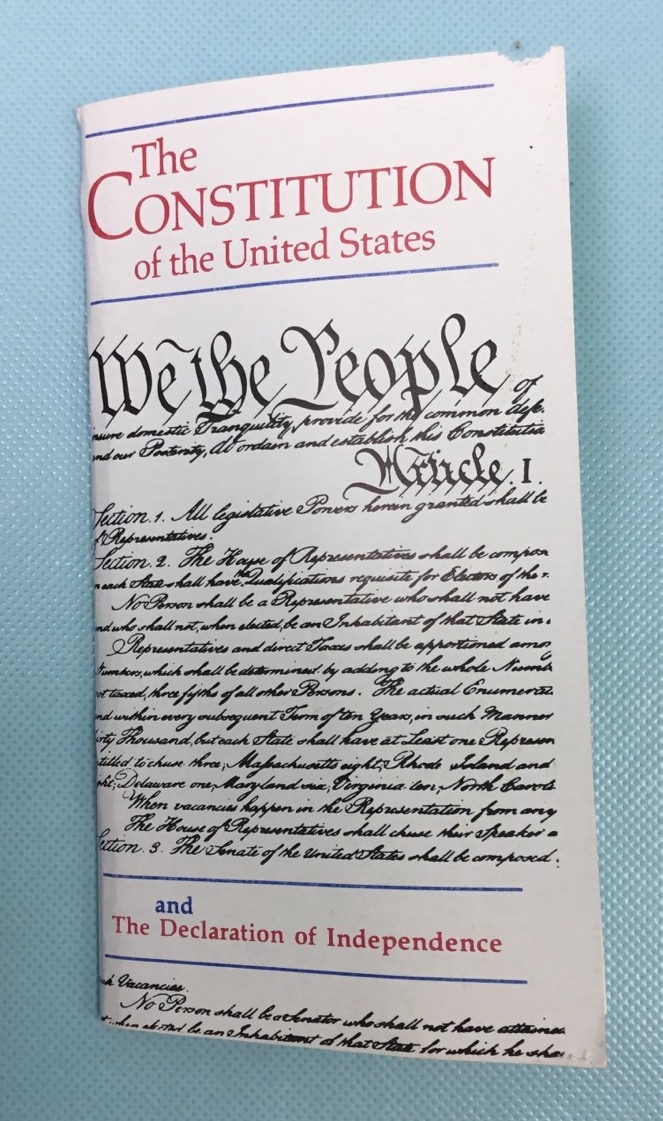 The
CONSTITUTION
of the United States
We the People of
nsure domestic Tranquility, provide for the common defe
nd our Posterity, do ordain and establish this Constitutio
Article. I.
Section. 1. All legislative Powers herein granted shall be
f Representatives.
Section. 2. The House of Representatives shall be compos
n each State shall have the Qualifications requisite for Electors of the
No Person shall be a Representative who shall not have
nd who shall not, when elected, be an Inhabitant of that State in
Representatives and direct Taxes shall be apportioned amon
Numbers, which shall be determined by adding to the whole Numb
ot taxed, three fifths of all other Persons. The actual Enumerat
nd within every subsequent Term of ten Years, in such Manner
irty Thousand, but each State shall have at Least one Represen
titled to chuse three, Massachusetts eight, Rhode Island and
ght, Delaware one, Maryland six, Virginia ten, North Caroli
When vacancies happen in the Representation from any
The House of Representatives shall chuse their Speaker a
Section. 3. The Senate of the United States shall be composed
and
The Declaration of Independence
ch Vacancies.
No Person shall be a Senator who shall not have attained
t, when elected, be an Inhabitant of that State for which he sha